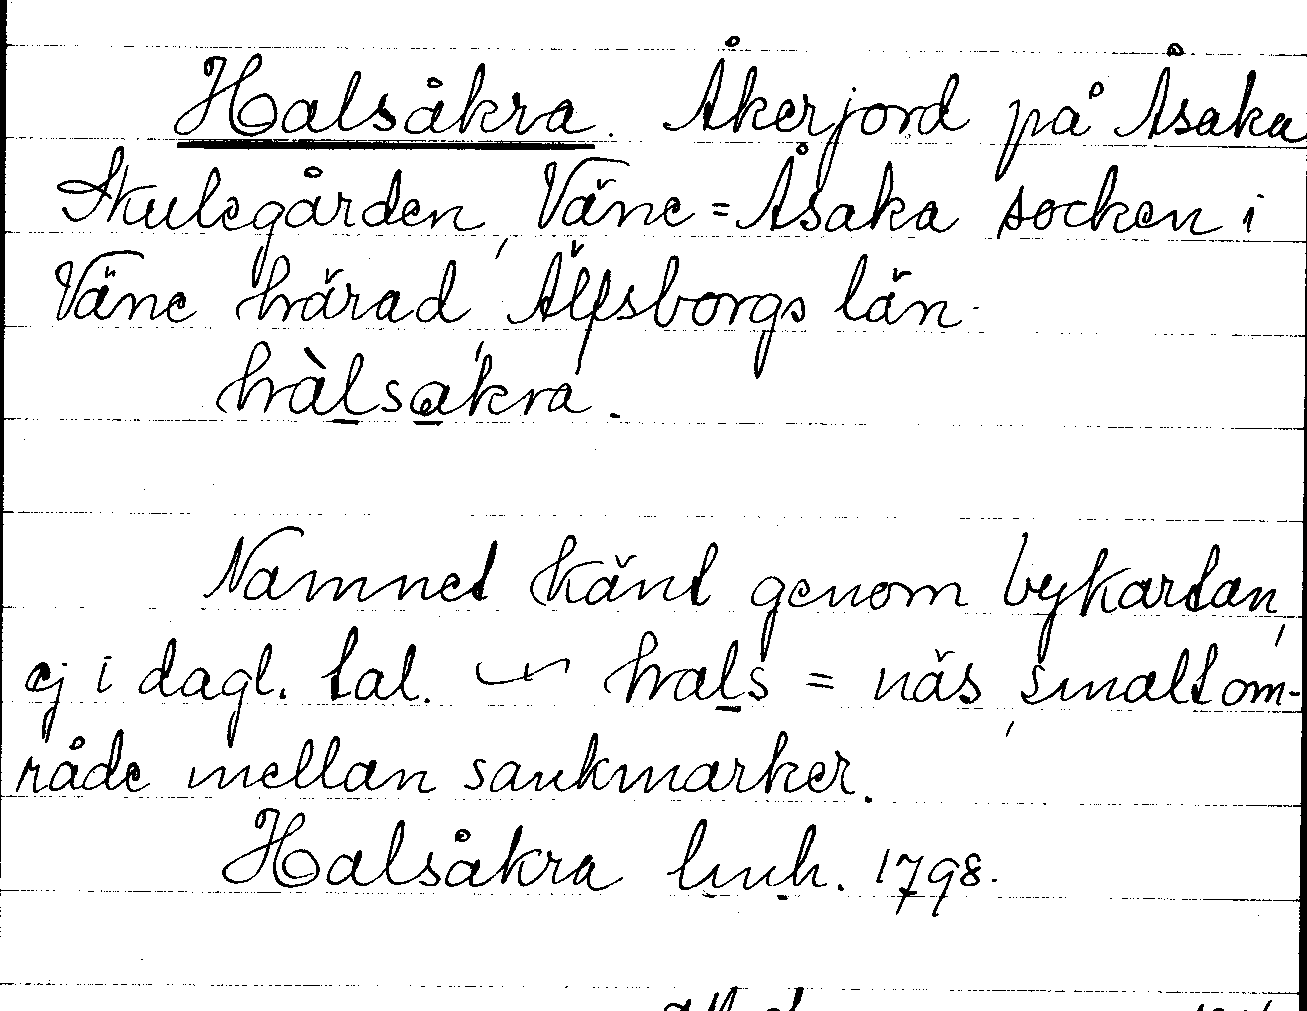 Halsåkra. Åkerjord på Åsaka
Skulegården, Väne=Åsaka socken i
Väne härad, Älfsborgs län.
hàlsakra.
Namnet känt genom bykartan,
ej i dagl. tal. hals = näs, smalt om-
råde mellan sankmarker.
Halsåkra lmh. 1798.